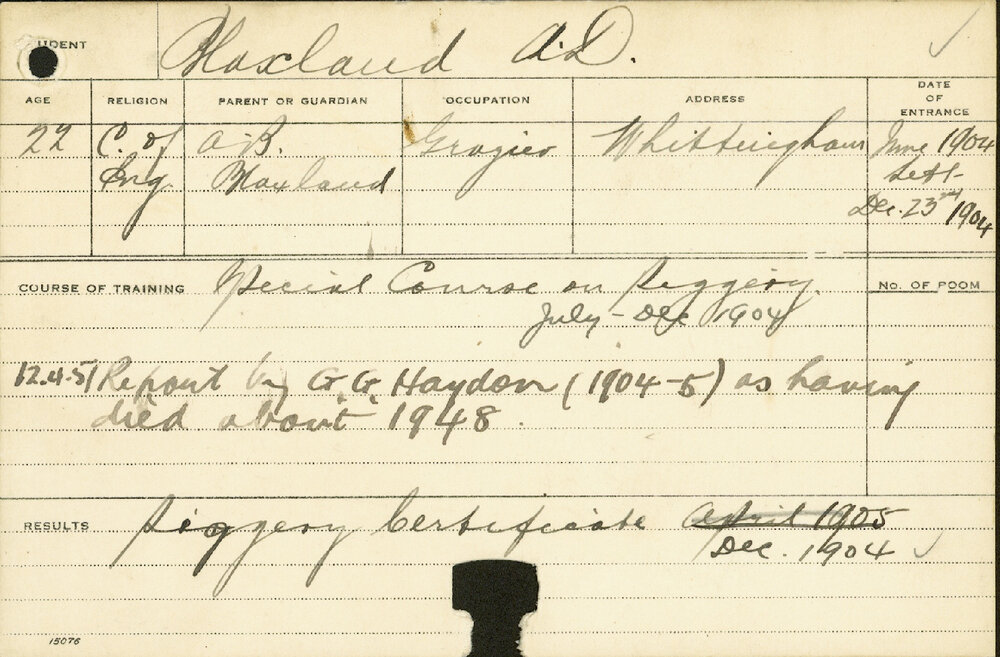 UDENT Blaxland A.D. ✓
AGE RELIGION PARENT OR GUARDIAN OCCUPATION ADDRESS DATE OF ENTRANCE
22 C. of A.B. Grazier Whittingham June 1904
Eng. Blaxland Left
Dec. 23rd 1904
COURSE OF TRAINING Special Course on Piggery. No. OF POOM
July - Dec 1904
12.4.51 Report by G.G. Haydon (1904-5) as having
died about 1948.
RESULTS Piggery Certificate April 1905
Dec. 1904 ✓
15076